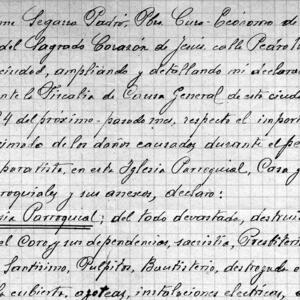 me Segarra Padró, Pbro. Cura-Ecónomo de
del Sagrado Corazón de Jesús, calle Pedro
ciudad, ampliando y detallando mi declara
ante la Fiscalía de Causa General de esta ciuda
4 del próximo-pasado mes, respecto el import
ximado de los daños causados durante el pe
paratista, en esta Iglesia Parroquial, Casa y
rroquiales y sus anexos, declaro:
sia Parroquial; del todo devastada, destrui
el Coro, y sus dependencias, sacristía, Presbiteri
Santísimo, Púlpitos, Bautisterio, destrozada
cubierta, azoteas, instalaciones eléctricas,